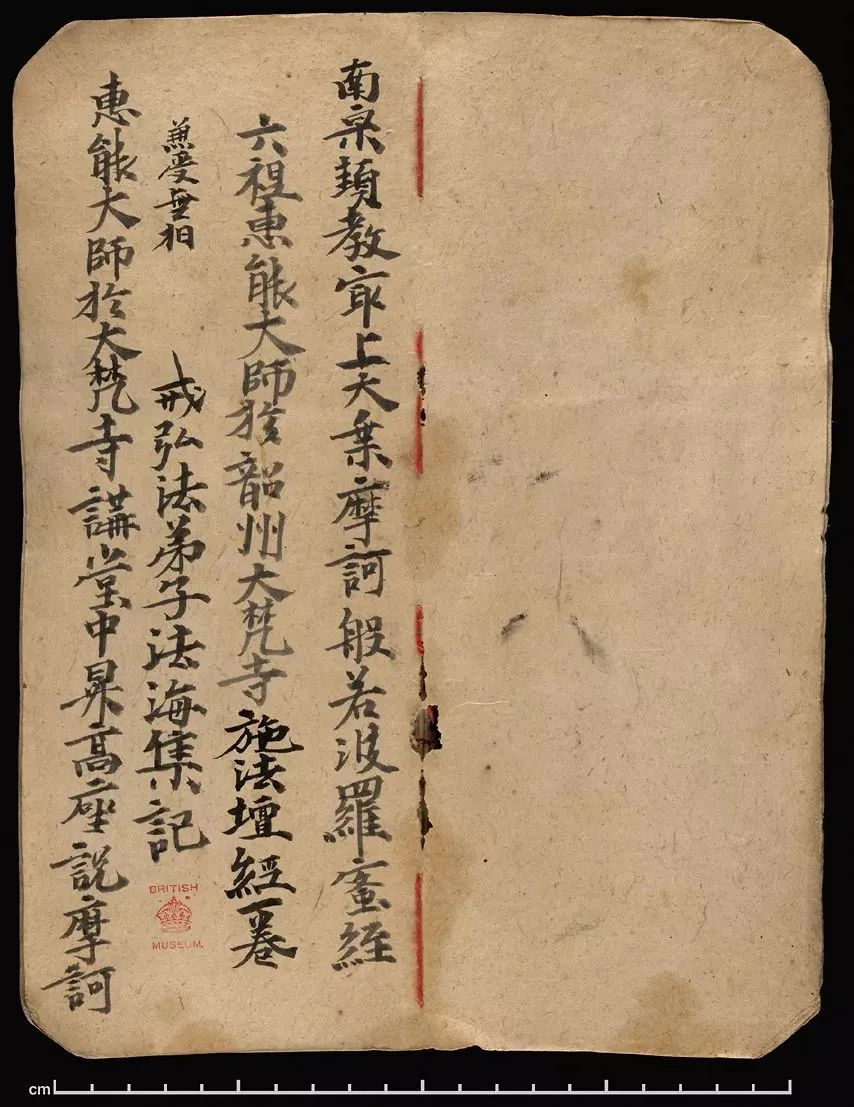 南宗頓教㝡上大乗摩訶般若波羅蜜経
六祖惠能大師於韶州大梵寺施法壇經一巻
兼受無相
戒弘法弟子法海集記
惠能大師扵大梵寺講堂中昇髙座説摩訶
BRITISH
MUSEUM.
cm